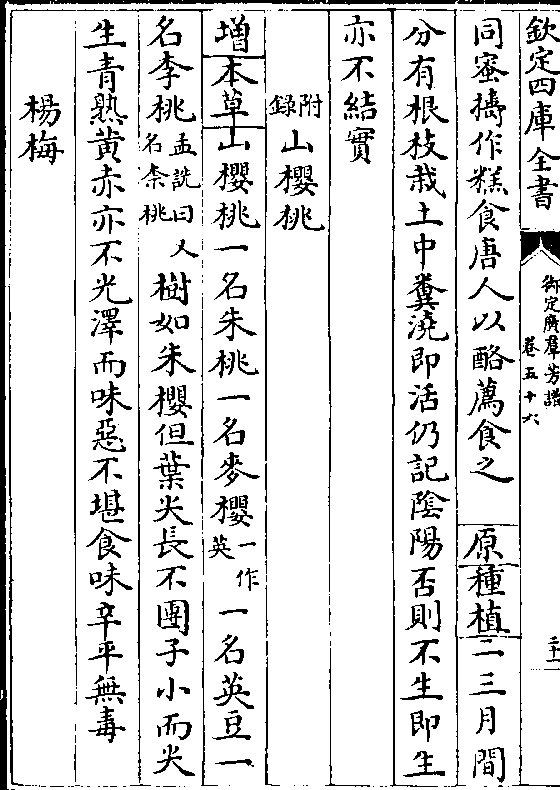 欽定四庫全書
御定廣羣芳譜
卷五十六
三十二
同蜜擣作糕食唐人以酪薦食之 原種植二三月間
分有根枝栽土中糞澆即活仍記陰陽否則不生即生
亦不結實
附錄山櫻桃
增本草山櫻桃一名朱桃一名麥櫻一作英一名英豆一
名李桃孟詵曰又名柰桃樹如朱櫻但葉尖長不團子小而尖
生青熟黄赤亦不光澤而味惡不堪食味辛平無毒
楊梅